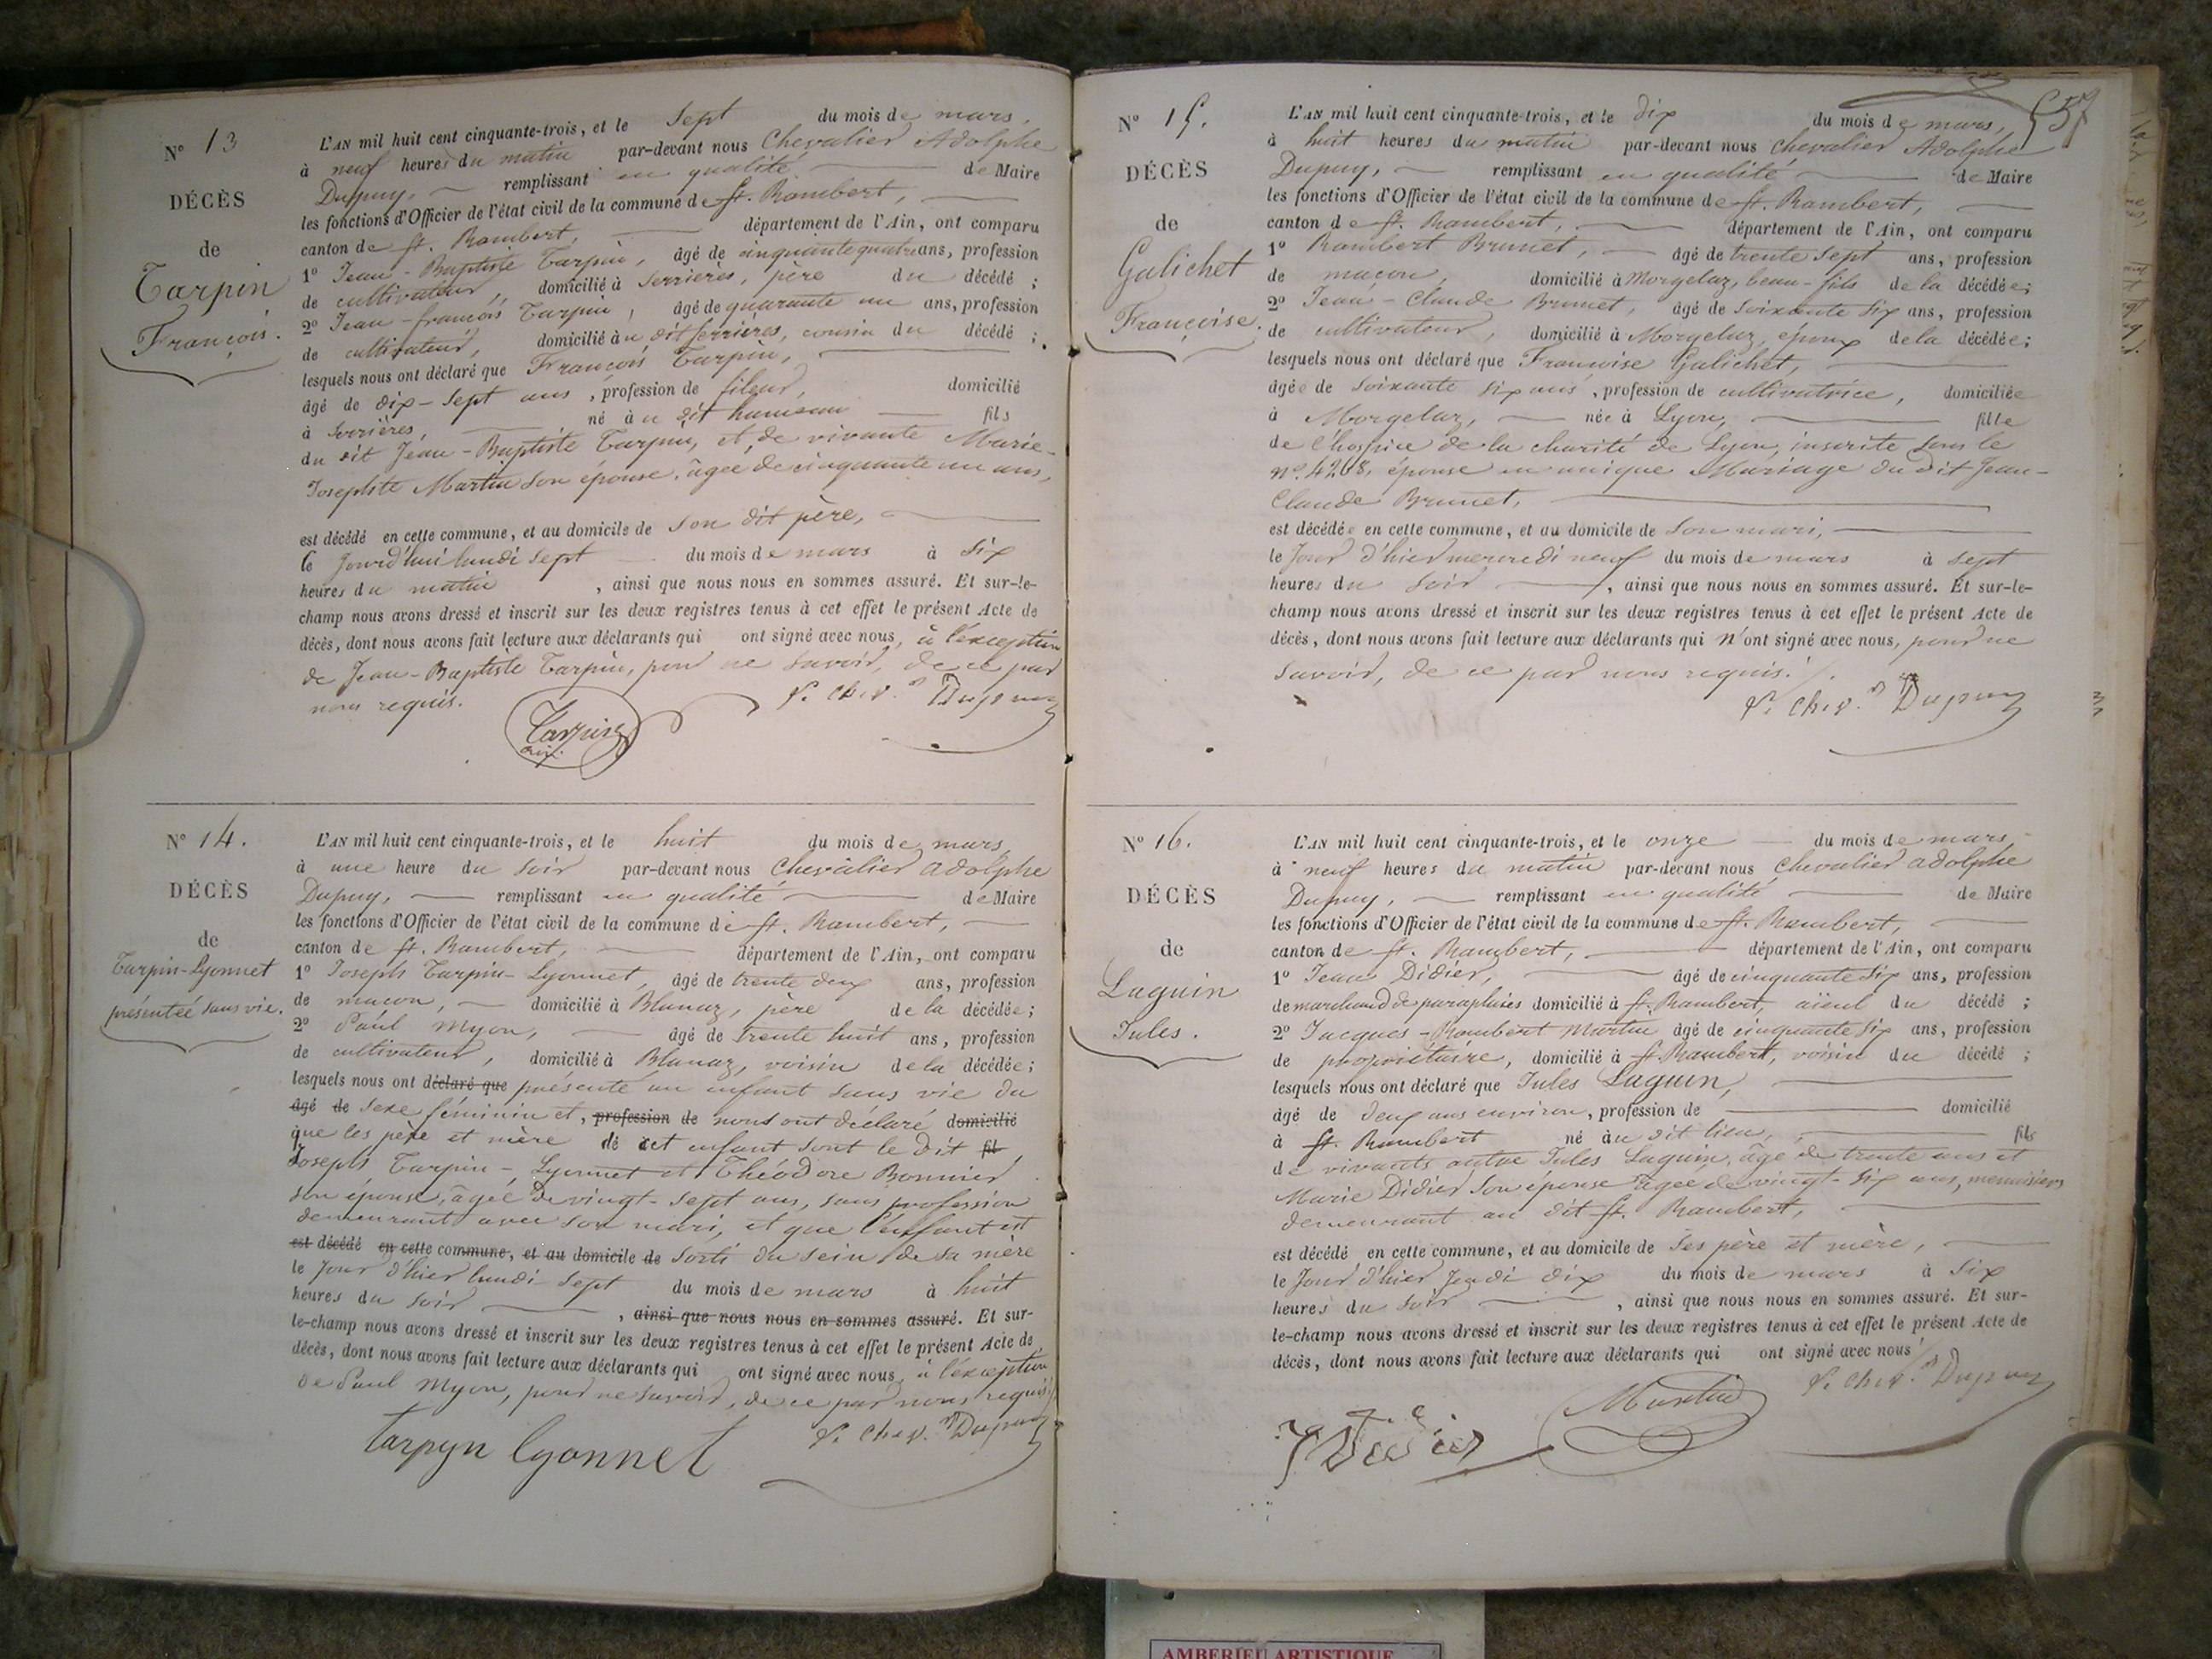 Nº 13
DÉCÈS
de
Tarpin
François.
L'AN mil huit cent cinquante-trois, et le sept du mois de mars,
à neuf heures du matin par-devant nous Chevalier Adolphe
Dupuy, remplissant en qualité de Maire
les fonctions d'Officier de l'état civil de la commune de St. Rambert,
canton de St. Rambert, département de l'Ain, ont comparu
1º Jean-Baptiste Tarpin, âgé de cinquante quatre ans, profession
de cultivateur, domicilié à Serrières, père du décédé ;
2º Jean-françois Tarpin, âgé de quarante un ans, profession
de cultivateur, domicilié au dit Serrières, cousin du décédé ;
lesquels nous ont déclaré que François Tarpin,
âgé de dix-sept ans, profession de fileur, domicilié
à Serrières, né au dit hameau fils
du dit Jean-Baptiste Tarpin, et de vivante Marie-
Josephte Martin son épouse, âgée de cinquante un ans,
est décédé en cette commune, et au domicile de son dit père,
le jourd'hui lundi sept du mois de mars à six
heures du matin, ainsi que nous nous en sommes assuré. Et sur-le-
champ nous avons dressé et inscrit sur les deux registres tenus à cet effet le présent Acte de
décès, dont nous avons fait lecture aux déclarants qui ont signé avec nous, à l'exception
de Jean-Baptiste Tarpin, pour ne savoir, de ce par
nous requis.
Tarpin
P. Chev. Dupuy
Nº 14.
DÉCÈS
de
Tarpin-Lyonnet
présentée sans vie.
L'AN mil huit cent cinquante-trois, et le huit du mois de mars,
à une heure du soir par-devant nous Chevalier Adolphe
Dupuy, remplissant en qualité de Maire
les fonctions d'Officier de l'état civil de la commune de St. Rambert,
canton de St. Rambert, département de l'Ain, ont comparu
1º Joseph Tarpin-Lyonnet, âgé de trente deux ans, profession
de maçon, domicilié à Blanaz, père de la décédée ;
2º Paul Myon, âgé de trente huit ans, profession
de cultivateur, domicilié à Blanaz, voisin de la décédée ;
lesquels nous ont déclaré que présenté un enfant sans vie du
âgé de sexe féminin et, profession de nous ont déclaré domicilié
que les père et mère de cet enfant sont le dit fil
Joseph Tarpin-Lyonnet et Théodore Bonnier
son épouse, âgée de vingt-sept ans, sans profession
demeurant avec son mari, et que l'enfant est
est décédé en cette commune, et au domicile de sorti du sein de sa mère
le jour d'hier lundi sept du mois de mars à huit
heures du soir, ainsi que nous nous en sommes assuré. Et sur-
le-champ nous avons dressé et inscrit sur les deux registres tenus à cet effet le présent Acte de
décès, dont nous avons fait lecture aux déclarants qui ont signé avec nous, à l'exception
de Paul Myon, pour ne savoir, de ce par nous requis.
tarpyn lyonnet
P. Chev. Dupuy
57
Nº 15.
DÉCÈS
de
Galichet
Françoise.
L'AN mil huit cent cinquante-trois, et le dix du mois de mars,
à huit heures du matin par-devant nous Chevalier Adolphe
Dupuy, remplissant en qualité de Maire
les fonctions d'Officier de l'état civil de la commune de St. Rambert,
canton de St. Rambert, département de l'Ain, ont comparu
1º Rambert Brunet, âgé de trente sept ans, profession
de maçon, domicilié à Morgelaz, beau-fils de la décédée ;
2º Jean-Claude Brunet, âgé de soixante six ans, profession
de cultivateur, domicilié à Morgelaz, époux de la décédée ;
lesquels nous ont déclaré que Françoise Galichet,
âgée de soixante six ans, profession de cultivatrice, domiciliée
à Morgelaz, née à Lyon, fille
de l'hospice de la charité de Lyon, inscrite sous le
nº. 4268, épouse en unique Mariage du dit Jean-
Claude Brunet,
est décédée en cette commune, et au domicile de son mari,
le jour d'hier mercredi neuf du mois de mars à sept
heures du soir, ainsi que nous nous en sommes assuré. Et sur-le-
champ nous avons dressé et inscrit sur les deux registres tenus à cet effet le présent Acte de
décès, dont nous avons fait lecture aux déclarants qui n'ont signé avec nous, pour ne
savoir, de ce par nous requis.
P. Chev. Dupuy
Nº 16.
DÉCÈS
de
Laguin
Jules.
L'AN mil huit cent cinquante-trois, et le onze du mois de mars,
à neuf heures du matin par-devant nous Chevalier Adolphe
Dupuy, remplissant en qualité de Maire
les fonctions d'Officier de l'état civil de la commune de St. Rambert,
canton de St. Rambert, département de l'Ain, ont comparu
1º Jean Didier, âgé de cinquante six ans, profession
de marchand de parapluies domicilié à St. Rambert, aïeul du décédé ;
2º Jacques-Rambert Martin âgé de cinquante six ans, profession
de propriétaire, domicilié à St. Rambert, voisin du décédé ;
lesquels nous ont déclaré que Jules Laguin,
âgé de deux ans environ, profession de domicilié
à St. Rambert né au dit lieu, fils
de vivants autre Jules Laguin, âgé de trente ans et
Marie Didier son épouse âgée de vingt-six ans, menuisiers
demeurant au dit St. Rambert,
est décédé en cette commune, et au domicile de ses père et mère,
le jour d'hier jeudi dix du mois de mars à six
heures du soir, ainsi que nous nous en sommes assuré. Et sur-
le-champ nous avons dressé et inscrit sur les deux registres tenus à cet effet le présent Acte de
décès, dont nous avons fait lecture aux déclarants qui ont signé avec nous
P. Chev. Dupuy
Martin
J Didier
AMBERIEU ARTISTIQUE